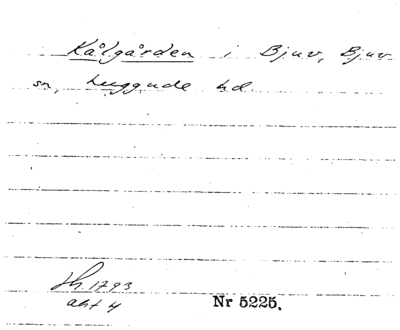 Kålgården i Bjuv, Bjuv
sn, Luggude hd.
Lh. 1793
akt 4
Nr 5225.